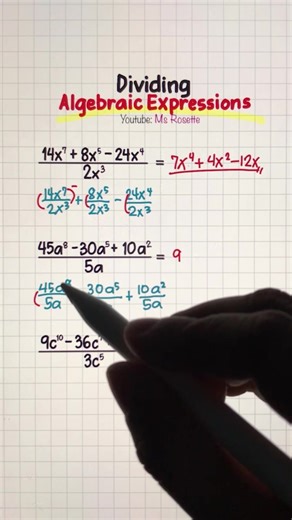 Dividing
Algebraic Expressions
Youtube: Ms Rosette
14x⁷ + 8x⁵ - 24x⁴
2x³
= 7x⁴ + 4x² - 12x
(14x⁷/2x³) + (8x⁵/2x³ - (24x⁴/2x³
45a⁸ - 30a⁵ + 10a²
5a
= 9
(45a/5a 30a⁵ + 10a²/5a
9c¹⁰ - 36c
3c⁵